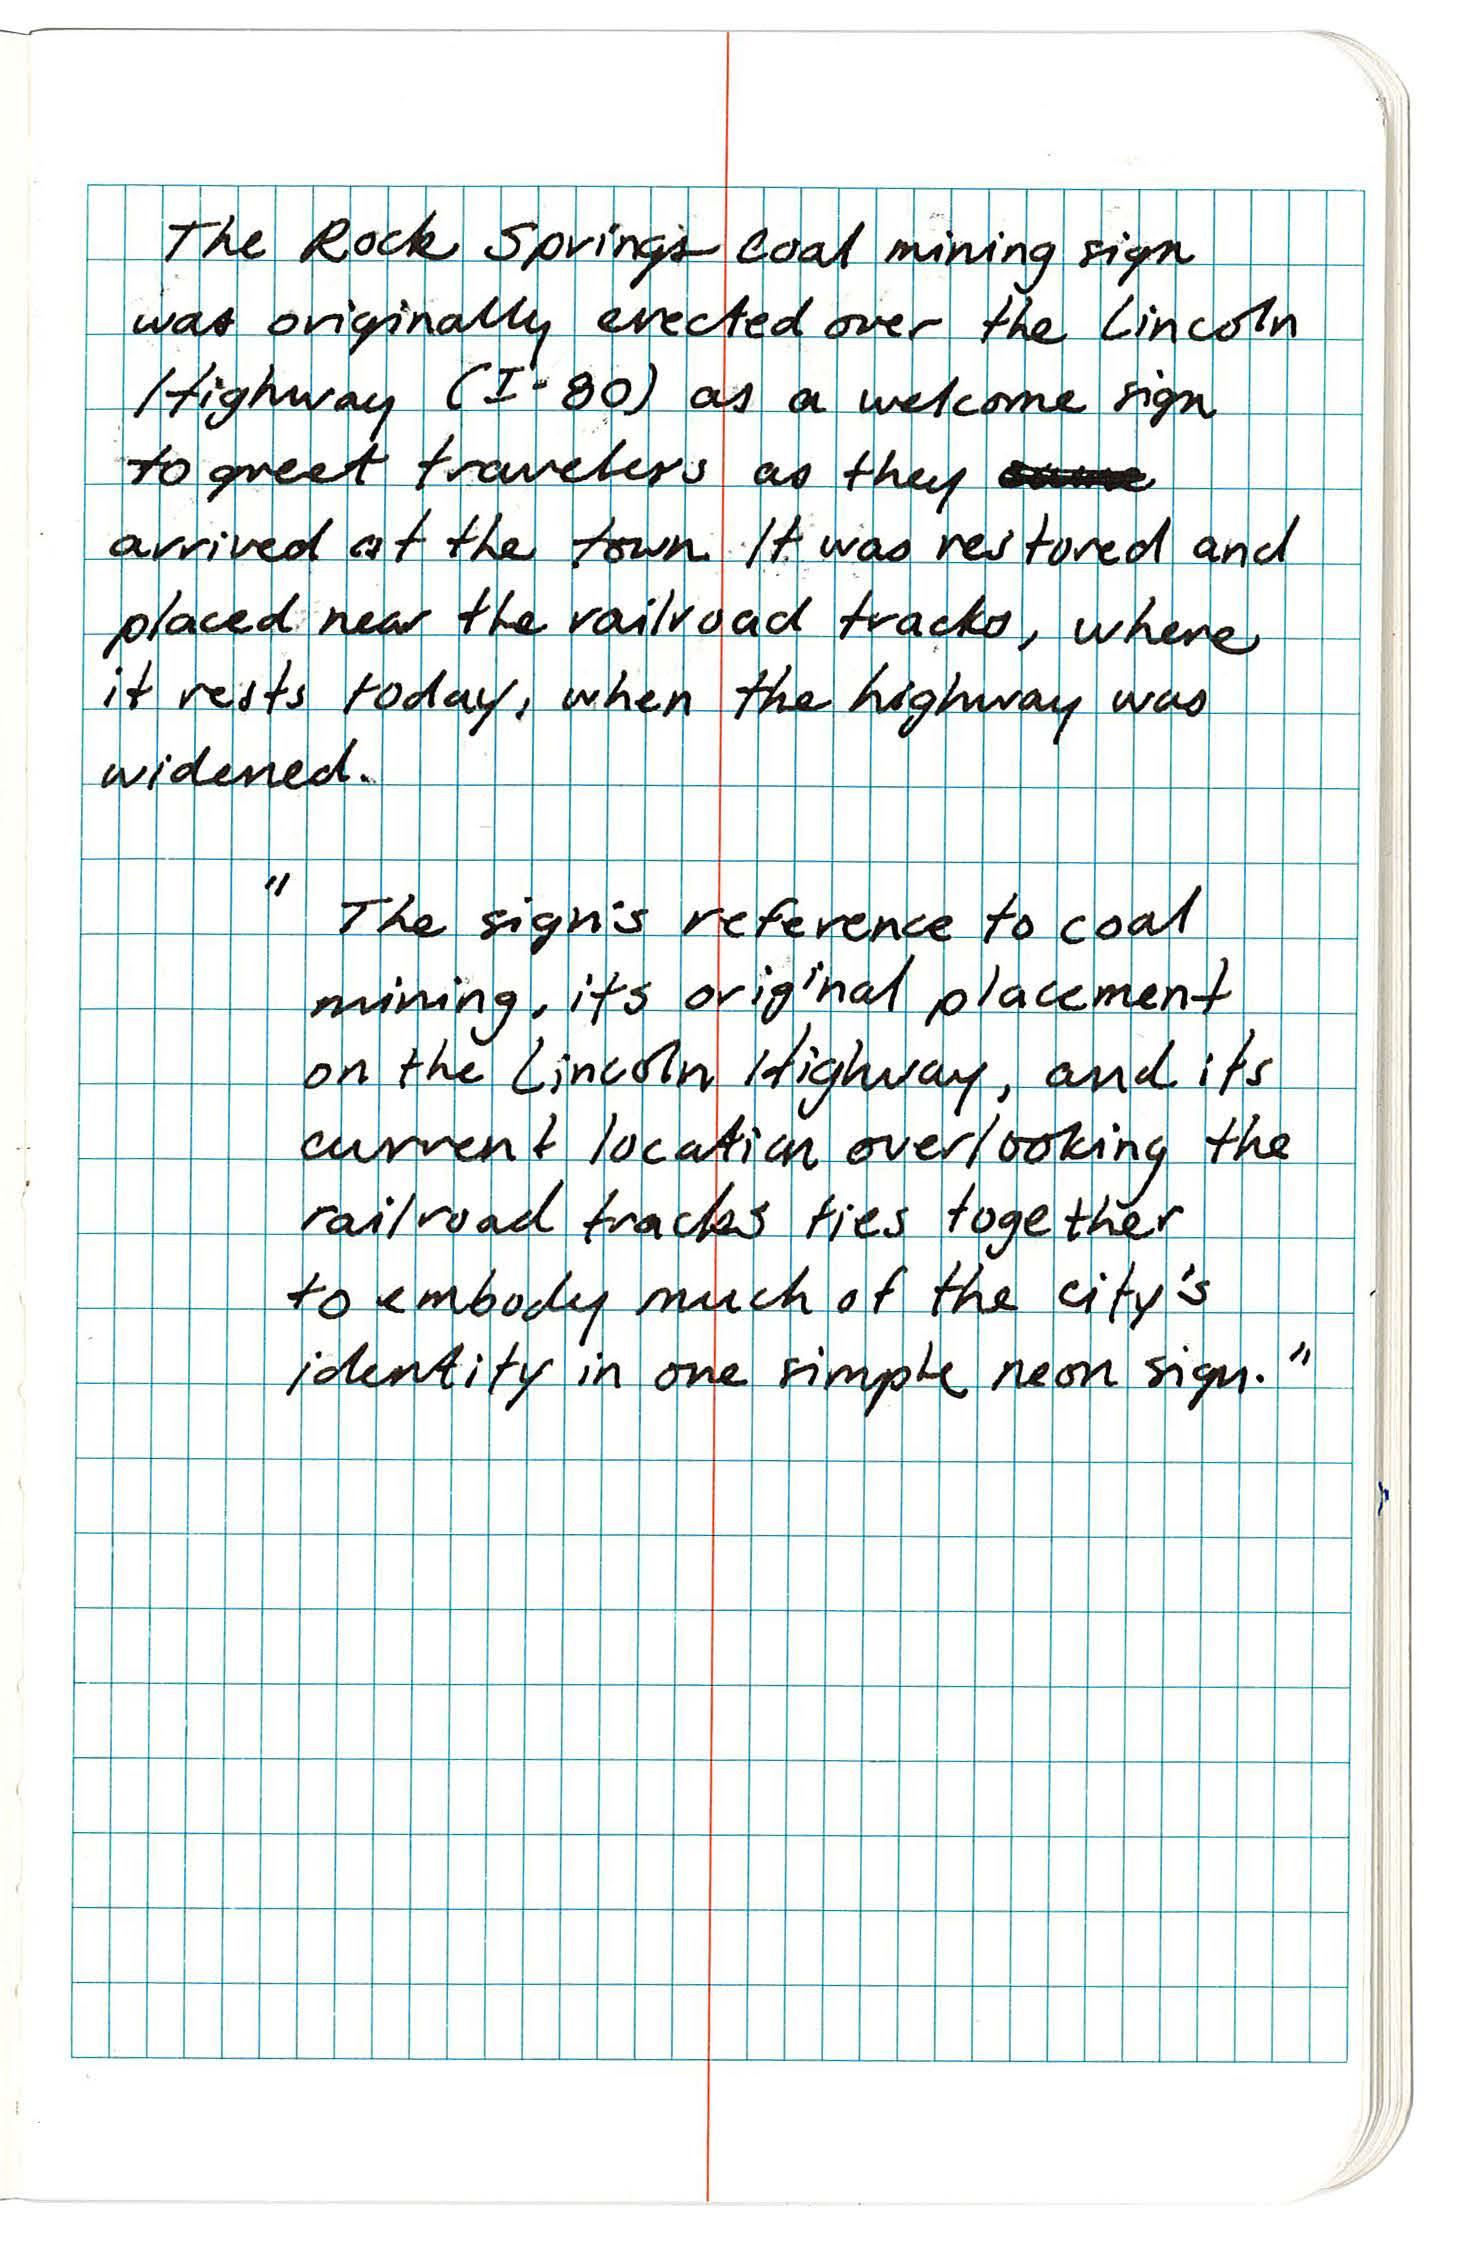 The Rock Springs coal mining sign
was originally erected over the Lincoln
Highway (I-80) as a welcome sign
to greet travelers as they
arrived at the town. It was restored and
placed near the railroad tracks, where
it rests today, when the highway was
widened.
" The sign's reference to coal
mining, its original placement
on the Lincoln Highway, and its
current location overlooking the
railroad tracks ties together
to embody much of the city's
identity in one simple neon sign. "